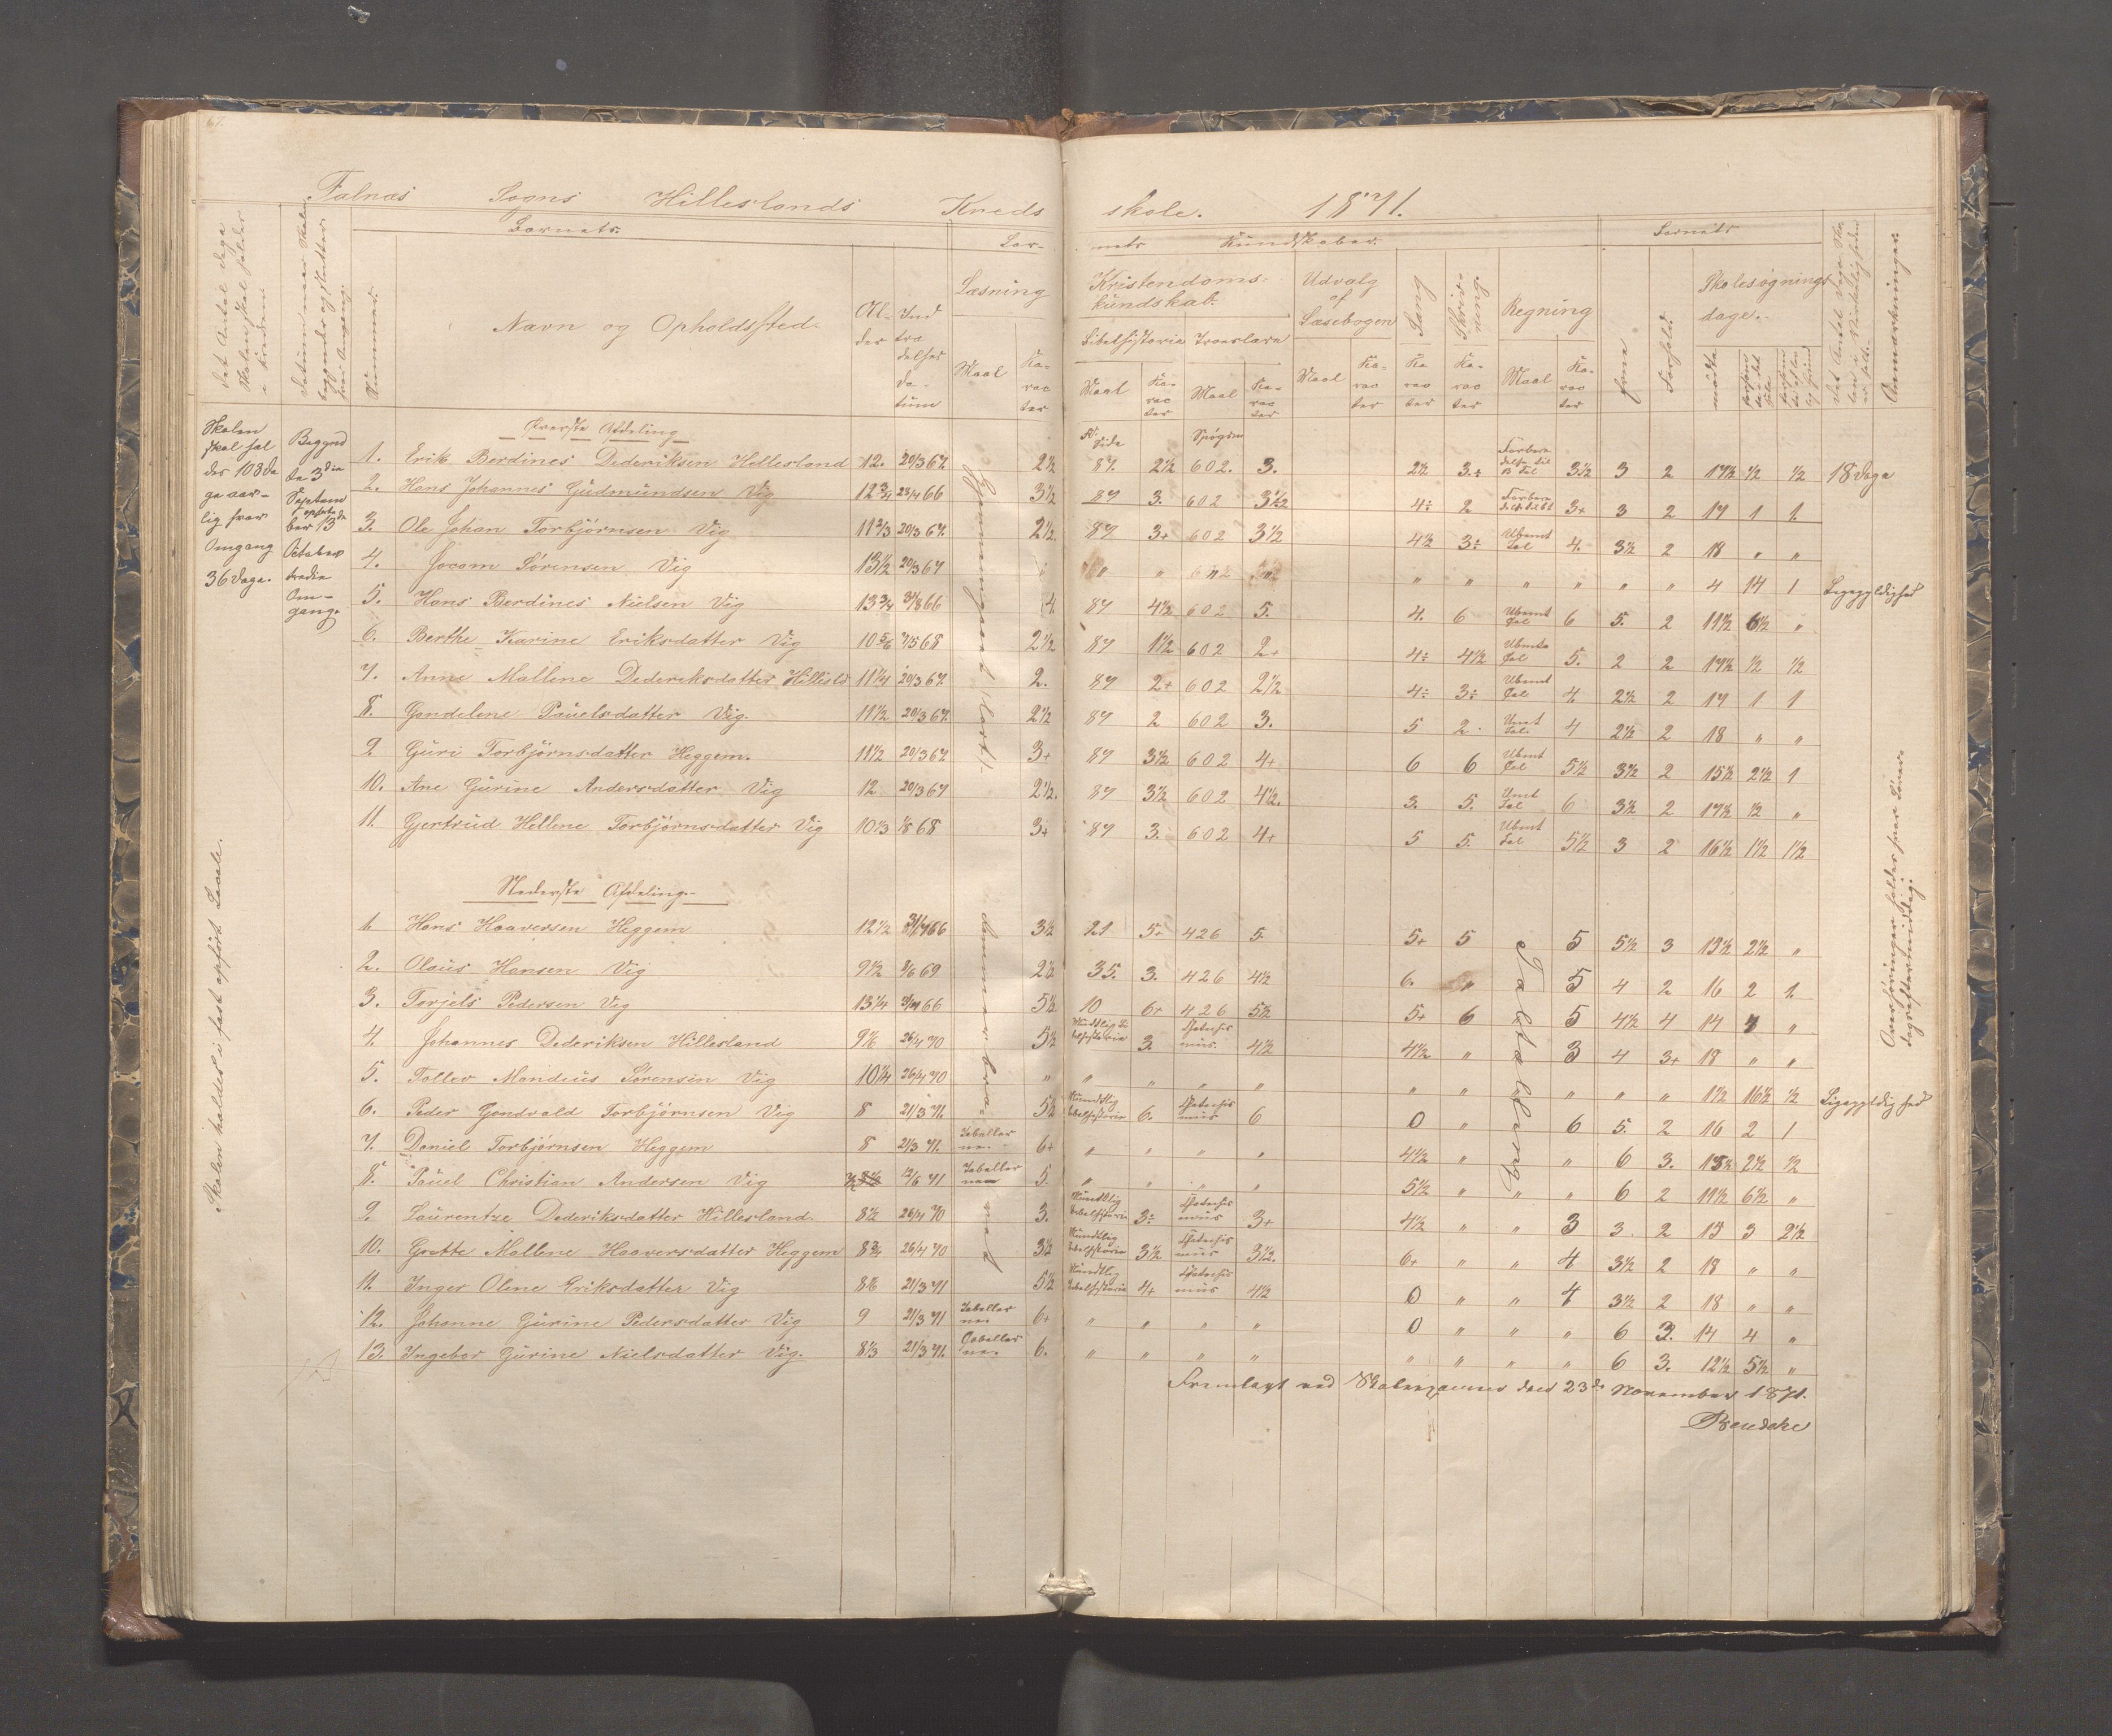 Falnæs Sogns Hilleslands Kreds skole. 1871.
Det Antal Dage Skolen skal holdes i Kredsen
Datum naar Skolen begyndes og sluttes hver Omgang.
Barnets.
Nummer.
Navn og Opholdssted.
Al- der
Ind træ delses da- tum
Bar- nets Kundskaber.
Læsning
Maal
Ka- rac ter
Kristendoms- kundskab.
Bibelhistorie Troeslære
Maal Ka- rac ter Maal Ka- rac ter
Udvalg af Læsebogen
Maal Ka- rac ter
Sang Ka rac ter
Skriv- ning. Ka- rac ter
Regning
Maal Ka- rac ter
Barnets
Evne
Forhold.
Skolesøgnings dage.
mødte
Anmærkninger.
Skolen skal hol des 108 Da ge aar- lig hver Omgang 36 Dage.
Begynd te 3die Septem ber opsluttet 13de October tredie Om- gang.
Skolen holdes i fast opført Locale.
Øverste Afdeling
Side Spøgsm
1. Erik Berdines Dederiksen Hellesland 12. 20/3 67. 2½ 87. 2½ 602. 3. 2½ 3.÷ 3½ 3 2 17½ ½ ½ 18 Dage
2. Hans Johannes Gudmundsen Vig 12¾ 66 3½ 87 3. 602 3½ 4÷ 2 3+ 3 2 17 1 1.
3. Ole Johan Torbjörnsen Vig 11⅔ 20/3 67. 2½. 87 3+ 602 3½ 4½ 3÷ Ubemt Tal 4. 3½ 2 18 " "
4. Jocom Sörensen Vig 13½ 20/3 67 " " " " " " " " 4 14 1 Ligegyldighed
5. Hans Berdines Nielsen Vig 13¾ 31/8 66 4. 87 4½ 602 5. 4. 6 Ubemt Tal 6 5. 2 11½ 6½ "
6. Berthe Karine Eriksdatter Vig 10⅚ 68 2½ 87 1½ 602 2+ 4÷ 4½ Ubemte Tal 5. 2 2 17½ ½ ½
7. Anne Mallene Dederiksdatter Hillisld 11¼ 20/3 67. 2. 87 2+ 602 2½ 4÷ 3÷ Ubemt Tal 4. 2½ 2 17 1 1
8. Gondelene Pauelsdatter Vig. 11½ 20/3 67. 2½ 87 2 602 3. 5 2. Umt Tal. 4 2½ 2 18 " "
9 Guri Torbjörnsdatter Heggem. 11½ 20/3 67 3+ 87 3½ 602 4+ 6 6 Ubmt Tal 5½ 3½ 2 15½ 2½ 1
10. Ane Gurine Andersdatter Vig 12 20/3 67 2½. 87 3½ 602 4½. 3. 5. Umt Tal 6 3½ 2 17½ ½ "
11. Gjertrud Hellene Torbjörnsdatter Vig 10⅓ 68 3+ 87 3. 602 4+ 5 5. Ubmt Tal 5½ 3 2 16½ 1½ 1½
Nederste Afdeling.
1. Hans Haaversen Heggem 12½ 66 3½ 21 5+ 426 5 5+ 5 5 5½ 3 15½ 2½ "
2. Olaus Hansen Vig 9½ 69 2½ 35. 3. 426 4½ 6. " 5 4 2 16 2 1.
3. Torjels Pedersen Vig 13¼ 66 5½ 10 6+ 426 5½ 5+ 6 5 4½ 4 14 4 "
4. Johannes Dederiksen Hillesland 9⅙ 26/4 70 5½ Mundtlig Bi belhistorie 3. Chatechis mus. 4½ 4½ " 3 4 3+ 18 " "
5. Tollev Mondeus Sørensen Vig 10¼ 26/4 70 " " " " " " " " " " 1½ 16½ ½ Ligegyldighed
6. Peder Gondvald Torbjørnsen Vig 8 21/3 71. 5½ Mundtlig bibelhistorie 6. Chatechis mus 6 0 " 6 5. 2 16 2 1
7. Daniel Torbjørnsen Heggem 8 21/3 71. Tabeller ne. 6+ " " " " 4½ " " 6 3. 15½ 2½ ½
8. Pauel Christian Andersen Vig 71 Tabeller ne 5. " " " " 5½ " " " 6 2 11½ 6½ "
9. Laurentze Dederiksdatter Hillesland. 8½ 26/4 70 3. Mundtlig bibelhistorie 3÷ Chatechis mus 3+ 4½ " " 3 3. 2 15 3 2½
10. Grette Mallene Haaversdatter Heggem 8¾ 26/4 70 3½ Mundtlig bibelhistorie 3½ Chatechis mus 3½. 6+ " " 4 3½ 2 18 " "
11. Inger Oline Eriksdatter Vig 8⅙ 21/3 71 5½ Mundtlig bibelhistorie 4+ Chatechis mus 4½ 0 " " 4 3½ 2 18 " "
12. Johanne Gurine Pedersdatter Vig 9 21/3 71 Tabeller ne 6+ " " " " 0 " " " 6 3. 14 4 "
13. Ingebor Gurine Nielsdatter Vig. 8⅓ 21/3 71. Tabeller ne. 6. " " " " " " " " 6 3. 12½ 5½ "
Tavleregning
Fremlagt ved Skolexamen den 23de November 1871.